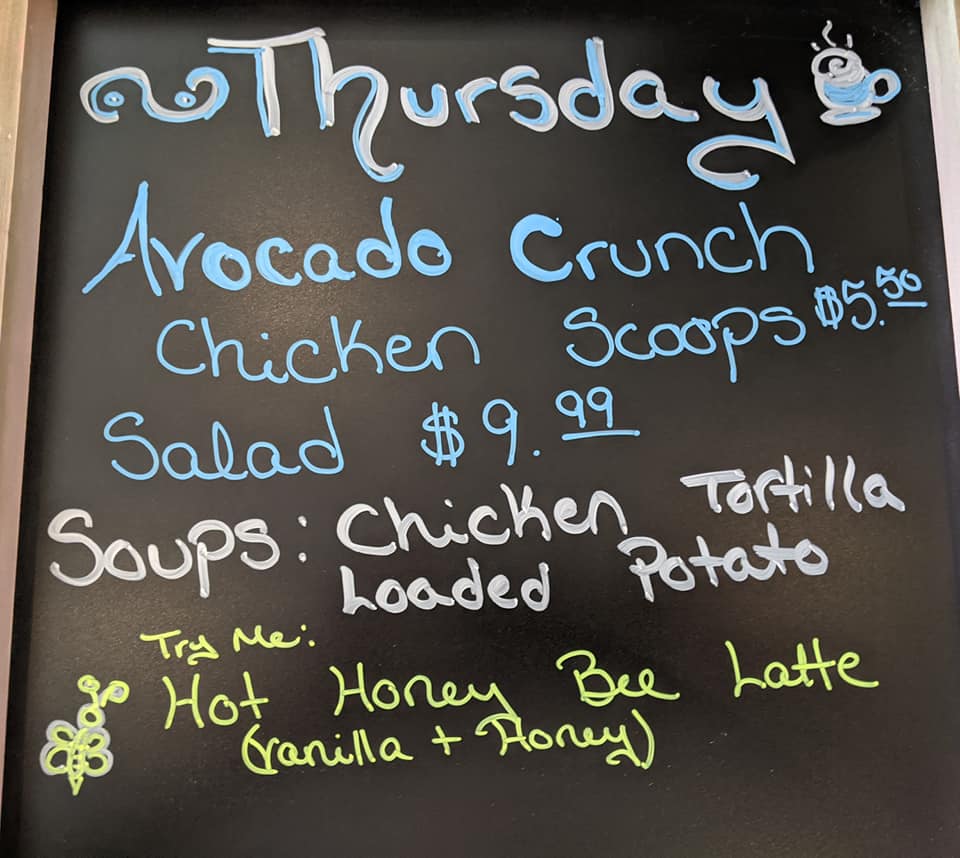 Thursday
Avocado Crunch
Chicken Scoops $5.50
Salad $9.99
Soups: Chicken Tortilla
Loaded Potato
Try Me:
Hot Honey Bee Latte
(vanilla + Honey)